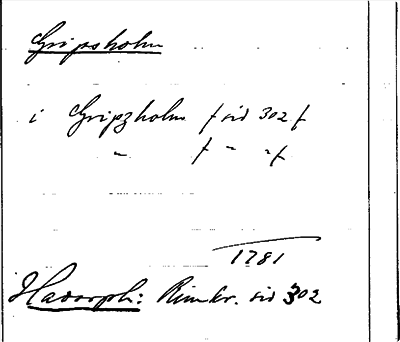 Gripsholm
i Gripzholm f sid 302 f
" f " " f
1781
Hadorph: Rimkr. sid 302